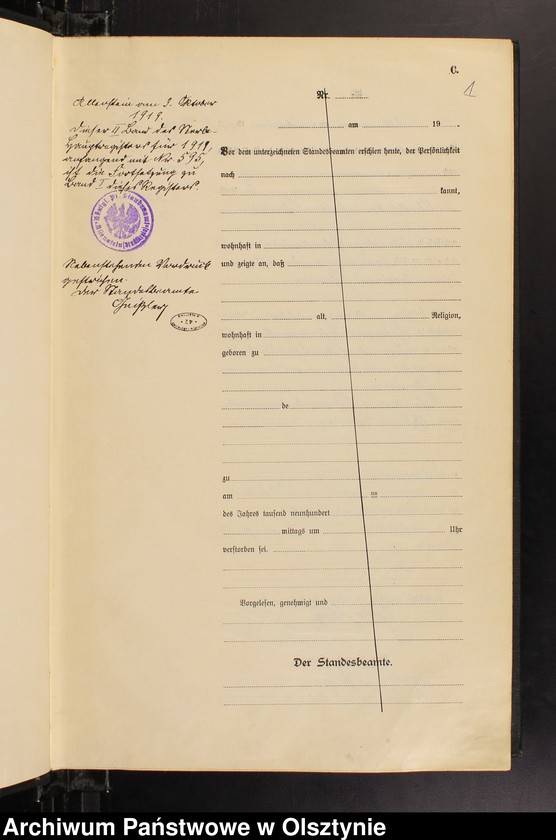 C.
1
Allenstein am 3. Oktober
1919.
Dieser II Band des Sterbe-
Hauptregisters für 1919,
anfangend mit Nr. 595,
ist die Fortsetzung zu
Band I dieses Registers.
Nebenstehenden Vordruck
gestrichen.
Der Standesbeamte
Nr.
am 19 .
Vor dem unterzeichneten Standesbeamten erschien heute, der Persönlichkeit
nach
kannt,
wohnhaft in
und zeigte an, daß
alt, Religion,
wohnhaft in
geboren zu
de
zu
am
des Jahres tausend neunhundert
mittags um Uhr
verstorben sei.
Vorgelesen, genehmigt und
Der Standesbeamte.
Archiwum Państwowe w Olsztynie